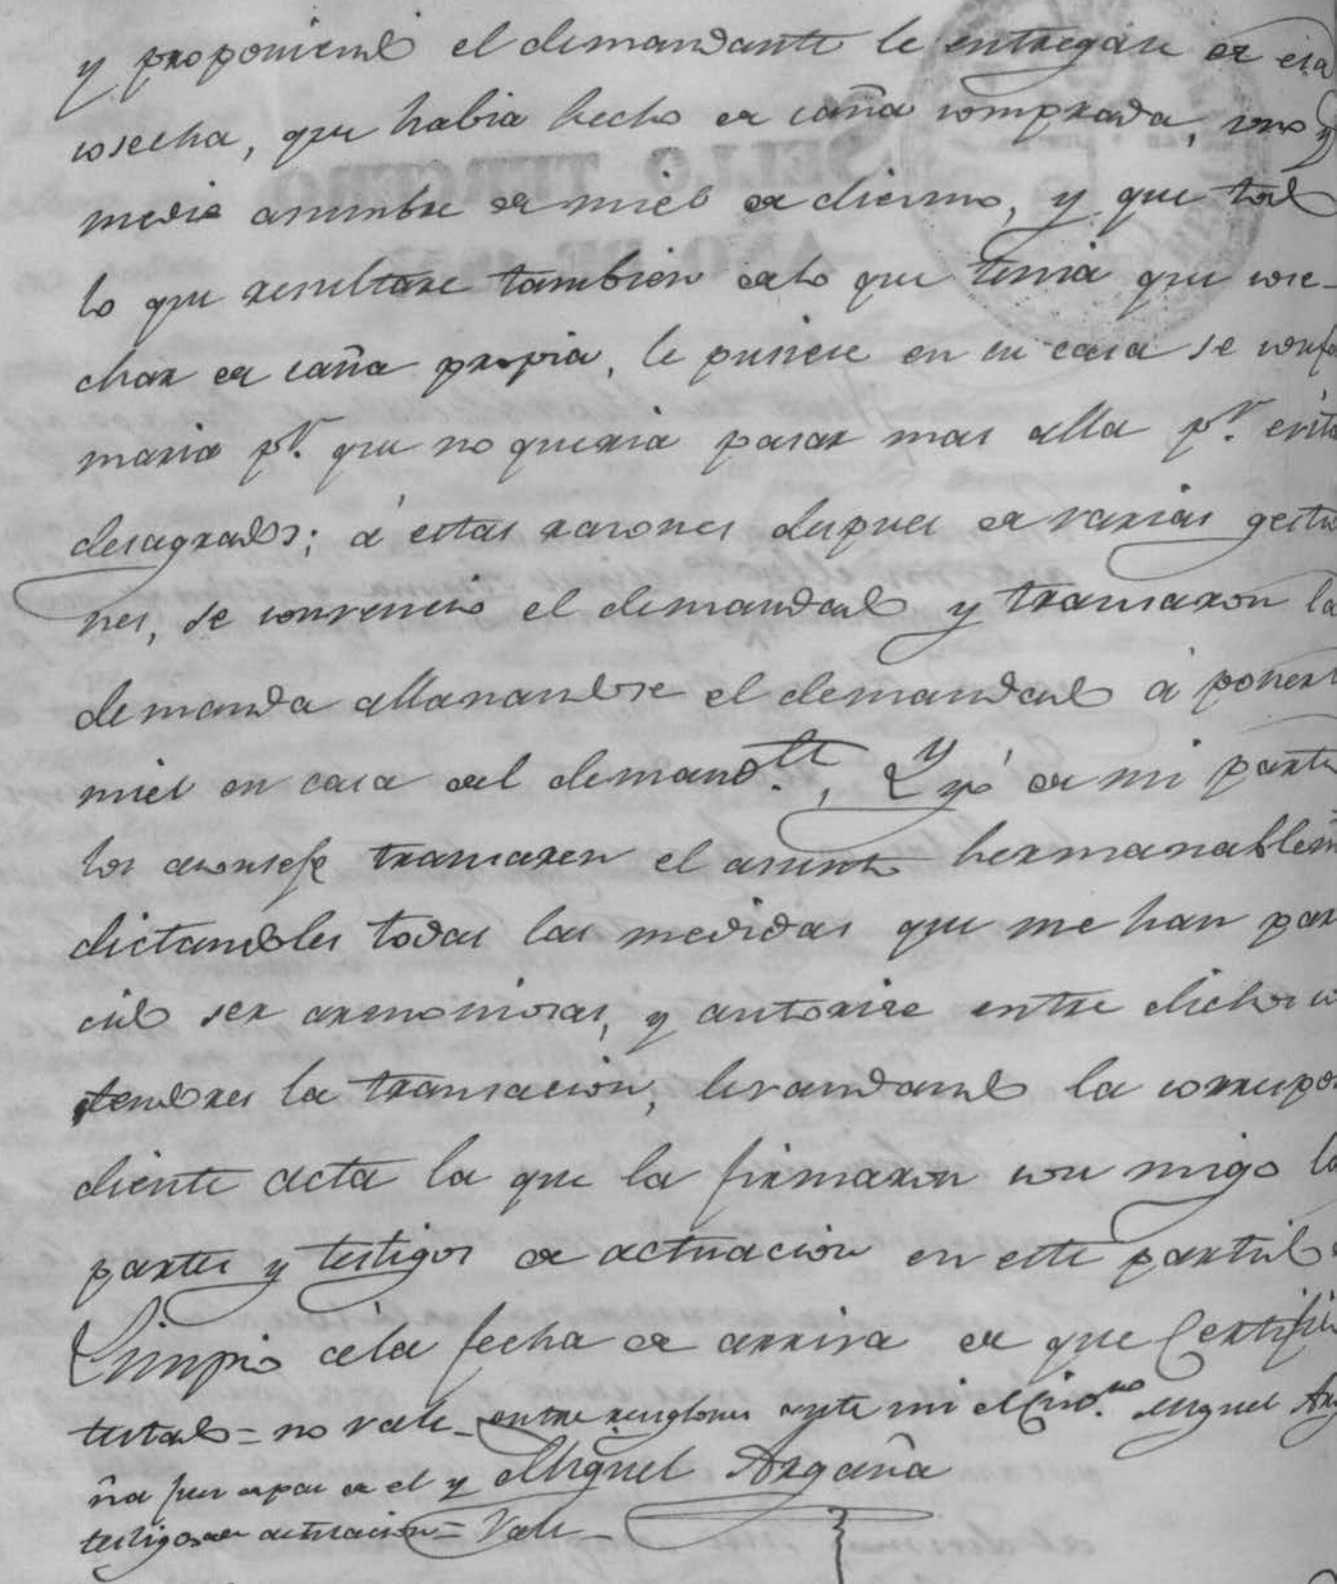 y proponiendo el demandante le entregáse de esa
cosecha, que habia hecho de caña comprada, uno y
medio asumbre de miel de diesmo, y que todo
lo que resultase tambien delo que tenia que cose-
char de caña propia, le pusiese en su casa se confor
maria pr. que no queria pasar mas alla pr. evita
desagrados; á estas rasones despues de varias gestio
nes, se convencio el demandado y transaron la
demanda allanandose el demandado á poner
miel en casa del demandte., y yo de mi parte
los aconsejé transasen el asunto hermanablem
dictandoles todas las medidas que me han pare
cido ser armoniosas, y autorise entre dichos con
tendores la transacion, levandando la correspon
diente acta la que la firmaron con migo los
partes y testigos de actuacion en este partido
Limpio dela fecha de arriva de que Certifico
testado = no vale entre renglones ante mi Miguel Arga
ña y Miguel Argaña
testigos de actuacion = Vale